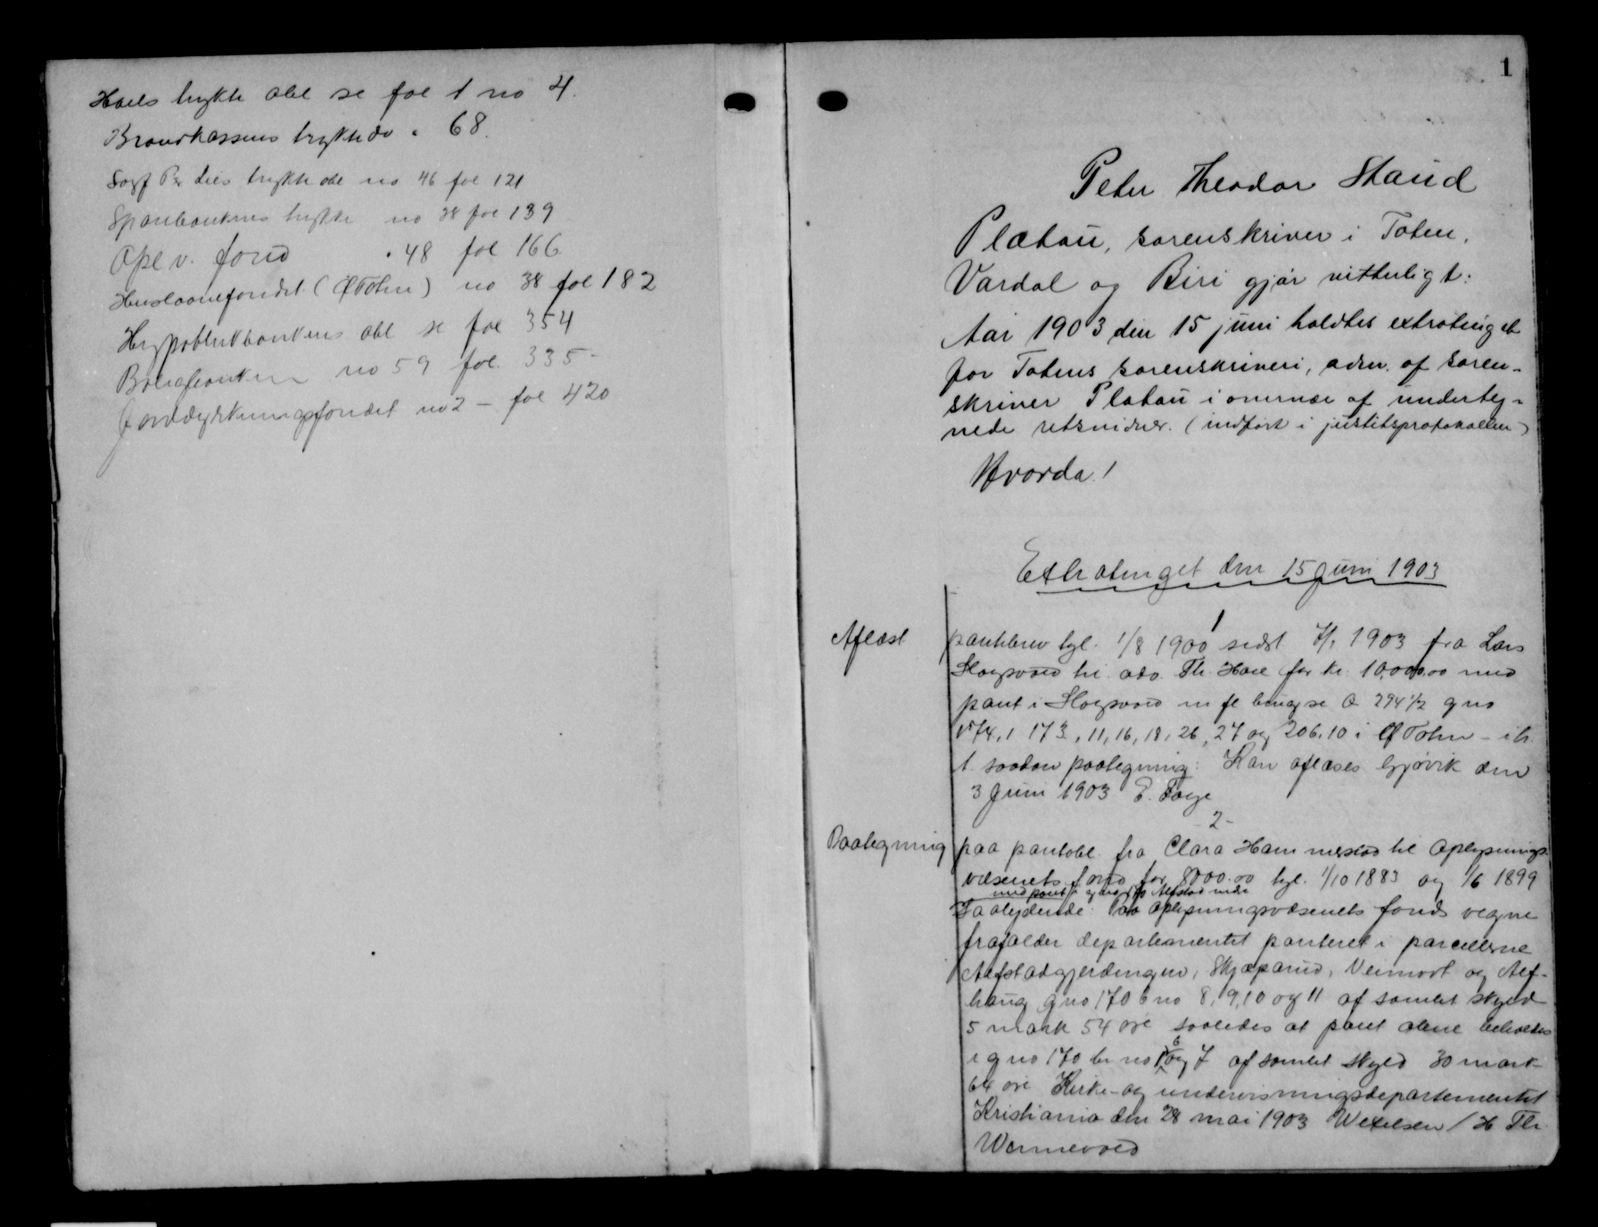 Haels trykte obl se fol 1 no 4.
Brandkassens trykte do " 68.
Sagf Per Lies trykte obl no 46 fol 121
Sparebankens trykte no 38 fol 139
Opl v. fond " 48 fol 166
Huslaanefondet (Ø Toten) no 38 fol 182
Hypothekbankens obl se fol 354
Brugbanken no 59 fol. 335-
Jorddyrkningsfondet no 2 - fol 420
1
Peter Theodor Staud
Platou, sorenskriver i Toten,
Vardal og Biri gjør vitterligt:
Aar 1903 den 15 juni holdtes extrating et
for Totens sorenskriveri, adm. af soren-
skriver Platou i overvær af underteg-
nede retsvidner. (indført i justitsprotokollen)
Hvorda!
Extratinget den 15 juni 1903
1
Aflæst pantebrev tgl. 1/8 1900 sidst 7/1 1903 fra Lars
til adv. Th. Hael for kr. 10,000.00 med
pant i m fl brug se O 294 1/2 gno
174,1 173, 11, 16, 18, 26, 27 og 206,10 i Ø Toten - ih.
t. saadan paategning: Kan aflæses Gjøvik den
3 Juni 1903 P.
-2-
Paategning paa pantobl. fra Clara Hammerstad til Oplysnings-
væsenets fond for 8000.00 tgl. 1/10 1883 og 1/6 1899
med pant i
saalydende: Paa Oplysningsvæsenets fonds vegne
frafalder departementet panteret i parcellerne
Alfstadgjerdingen, Skjæparud, Vermovt og Alf-
haug gno 170 bno 8, 9, 10 og 11 af samlet skyld
5 mark 54 øre saaledes at pant alene beholdes
i gno 170 br no 6 og 7 af samlet skyld 30 mark
64 øre Kirke- og undervisningsdepartementet
Kristiania den 28 mai 1903 Wexelsen / H Th.